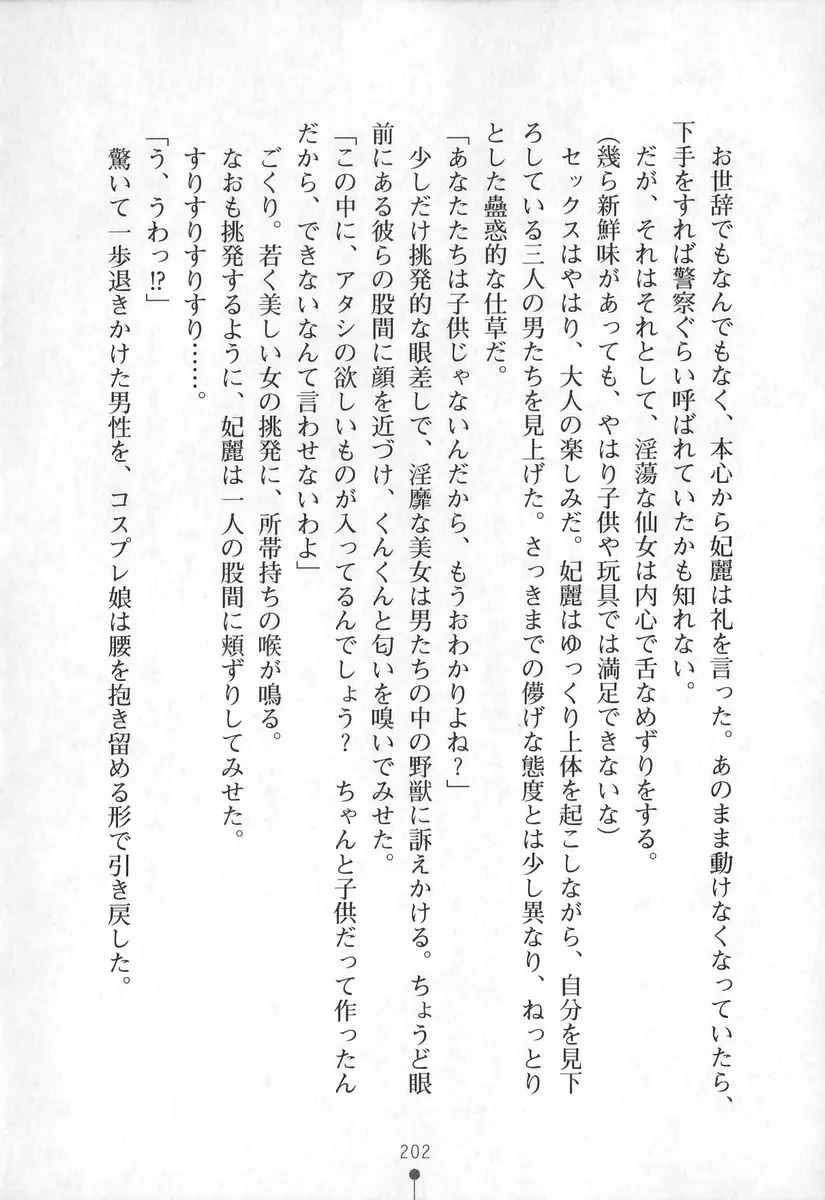 お世辞でもなんでもなく、本心から妃麗は礼を言った。あのまま動けなくなっていたら、
下手をすれば警察ぐらい呼ばれていたかも知れない。
だが、それはそれとして、淫蕩な仙女は内心で舌なめずりをする。
(幾ら新鮮味があっても、やはり子供や玩具では満足できないな)
セックスはやはり、大人の楽しみだ。妃麗はゆっくり上体を起こしながら、自分を見下
ろしている三人の男たちを見上げた。さっきまでの儚げな態度とは少し異なり、ねっとり
とした蠱惑的な仕草だ。
「あなたたちは子供じゃないんだから、もうおわかりよね?」
少しだけ挑発的な眼差しで、淫靡な美女は男たちの中の野獣に訴えかける。ちょうど眼
前にある彼らの股間に顔を近づけ、くんくんと匂いを嗅いでみせた。
「この中に、アタシの欲しいものが入ってるんでしょう? ちゃんと子供だって作ったん
だから、できないなんて言わせないわよ」
ごくり。若く美しい女の挑発に、所帯持ちの喉が鳴る。
なおも挑発するように、妃麗は一人の股間に頬ずりしてみせた。
すりすりすりすり……。
「う、うわっ!?」
驚いて一歩退きかけた男性を、コスプレ娘は腰を抱き留める形で引き戻した。
202